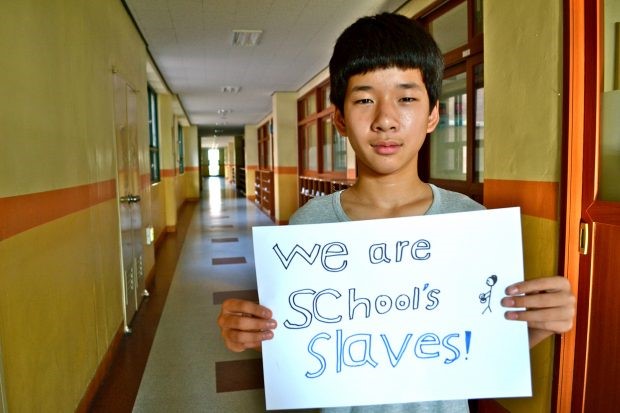 We are
School's
Slaves!